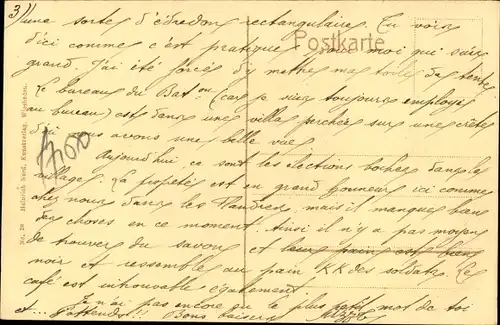 3)
une sorte d'édredon rectangulaire. Tu vois
d'ici comme c'est pratique moi qui suis
Postkarte
grand. J'ai été forcé d'y mettre ma toile de tente
Le bureau du Bat^on (car je suis toujours employé
au bureau) est dans une villa perchée sur une crête
d'où nous avons une belle vue.
Aujourd'hui ce sont les élections boches dans le
village. La propreté est en grand honneur ici comme
chez nous dans les Flandres, mais il manque bien
des choses en ce moment. Ainsi il n'y a pas moyen
de trouver du savon et leur pain est bien
noir et ressemble au pain KK des soldats. Le
café est introuvable également.
Je n'ai pas encore eu le plus petit mot de toi
et... j'attends!!! Bons baisers
No. 20 Heinrich Kunstverlag, Wiesbaden.